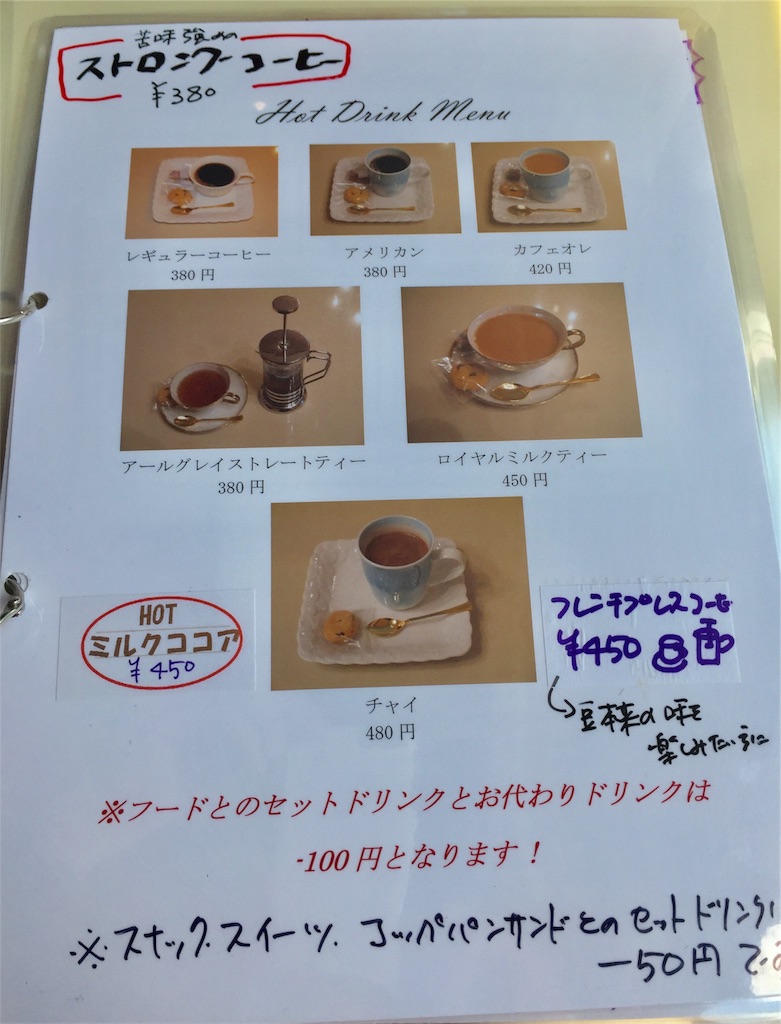 苦味強めの
ストロングコーヒー
¥380
Hot Drink Menu
レギュラーコーヒー
380 円
アメリカン
380 円
カフェオレ
420 円
アールグレイストレートティー
380 円
ロイヤルミルクティー
450 円
HOT
ミルクココア
¥450
チャイ
480 円
フレンチプレスコーヒー
¥450
豆本来の味を
楽しみたい方に
※フードとのセットドリンクとお代わりドリンクは
-100 円となります！
※スナック、スイーツ、コッペパンサンドとのセットドリンク
-50円で